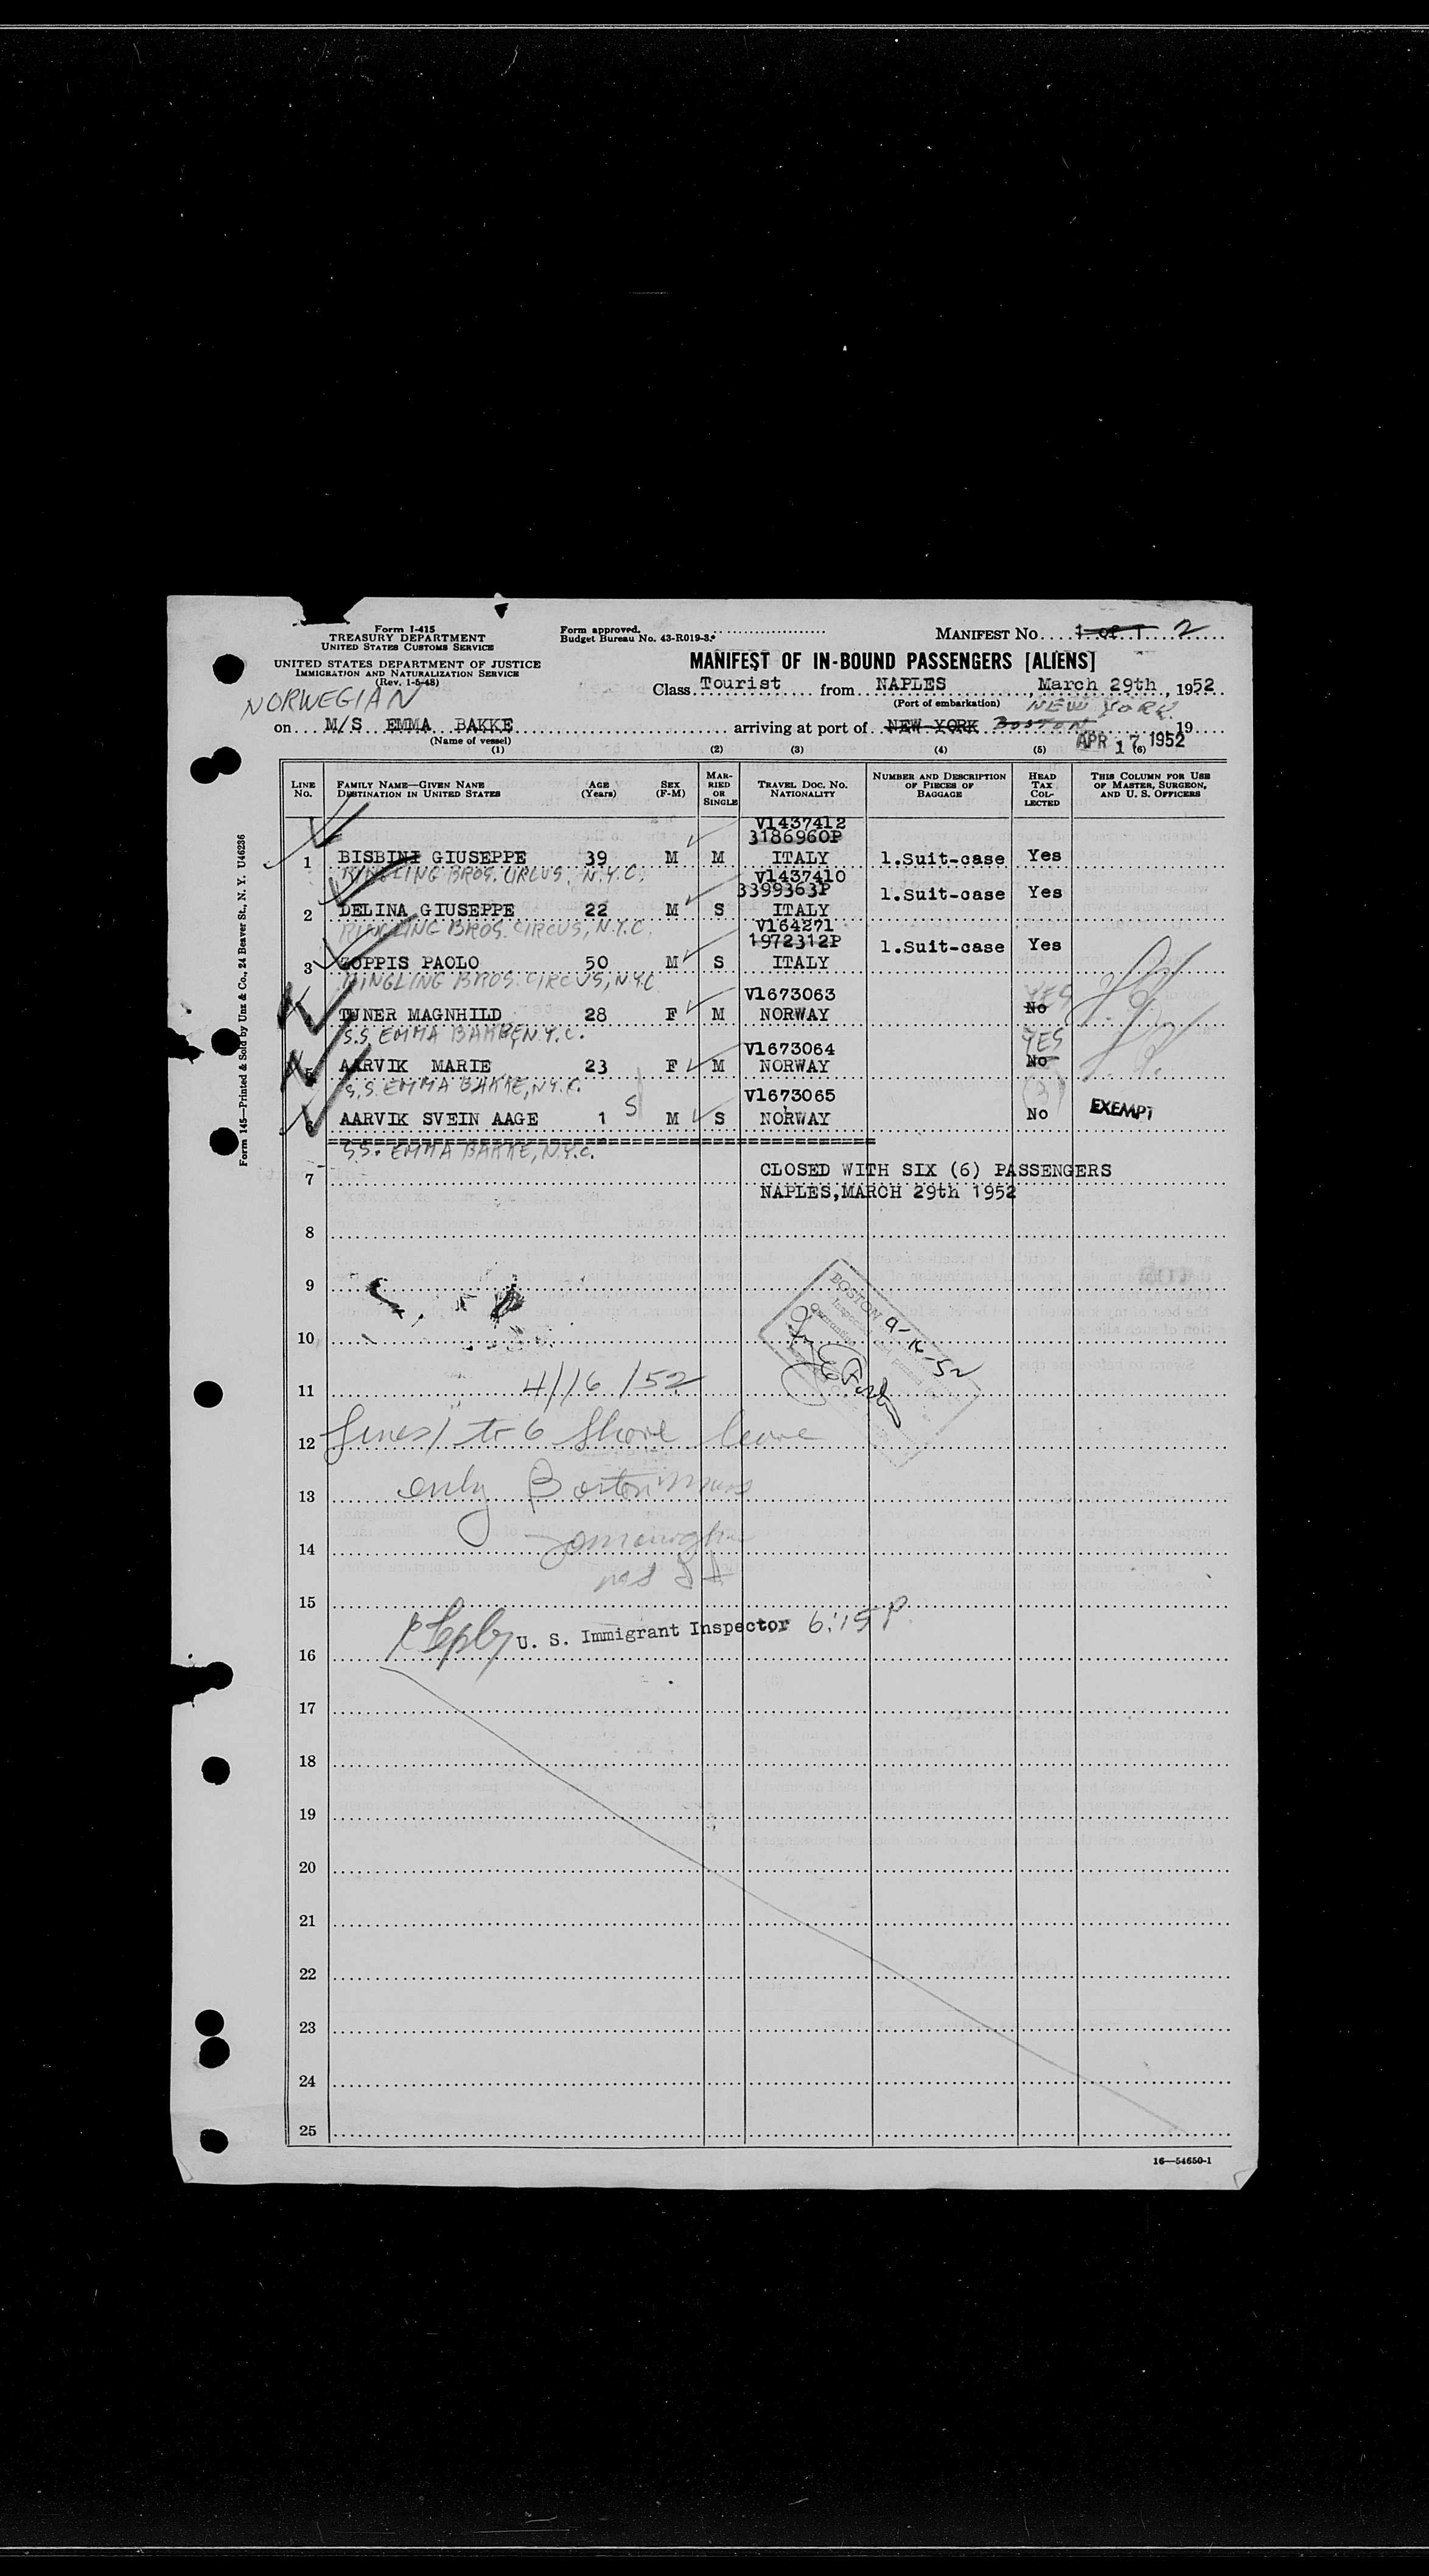 Form I-415
TREASURY DEPARTMENT
UNITED STATES CUSTOMS SERVICE
UNITED STATES DEPARTMENT OF JUSTICE
IMMIGRATION AND NATURALIZATION SERVICE
(Rev. 1-5-48)
Form approved.
Budget Bureau No. 43-R019-3.
MANIFEST No. 1 of 1 2
MANIFEST OF IN-BOUND PASSENGERS [ALIENS]
Class Tourist from NAPLES, March 29th, 1952
(Port of embarkation)
NORWEGIAN
NEW YORK
on M/S EMMA BAKKE arriving at port of NEW YORK BOSTON 19
(Name of vessel)
APR 17 1952
(1) (2) (3) (4) (5) (6)
LINE No. FAMILY NAME—GIVEN NAME DESTINATION IN UNITED STATES AGE (Years) SEX (F-M) MARRIED OR SINGLE TRAVEL DOC. No. NATIONALITY NUMBER AND DESCRIPTION OF PIECES OF BAGGAGE HEAD TAX COLLECTED THIS COLUMN FOR USE OF MASTER, SURGEON, AND U. S. OFFICERS
V1437412
3186960P
1 BISBINI GIUSEPPE 39 M M ITALY 1.Suit-case Yes
RINGLING BROS. CIRCUS, N.Y.C.
V1437410
3399363P 1.Suit-case Yes
2 DELINA GIUSEPPE 22 M S ITALY
RINGLING BROS. CIRCUS, N.Y.C.
V164271
1972312P 1.Suit-case Yes
3 ZOPPIS PAOLO 50 M S ITALY
RINGLING BROS. CIRCUS, N.Y.C.
V1673063 YES
TUNER MAGNHILD 28 F M NORWAY No
S.S. EMMA BAKKE, N.Y.C.
V1673064 YES
5 AARVIK MARIE 23 F M NORWAY No
S.S. EMMA BAKKE, N.Y.C.
(3)
V1673065
6 AARVIK SVEIN AAGE 1 S M S NORWAY No EXEMPT
S.S. EMMA BAKKE, N.Y.C.
7 CLOSED WITH SIX (6) PASSENGERS
NAPLES,MARCH 29th 1952
8
9
BOSTON
10
4/16/52
11
12 Lines 1 to 6 Shore leave
13 only Boston Mass
14
15
U. S. Immigrant Inspector 6:15 P.
16
17
18
19
20
21
22
23
24
25
16—54650-1
Form 145—Printed & Sold by Unz & Co., 24 Beaver St., N. Y. U46236